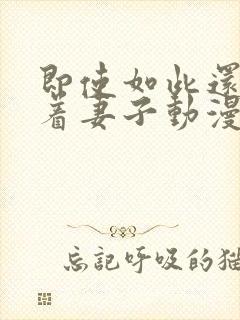 即使如此還
着妻子動漫
忘記呼吸的猫